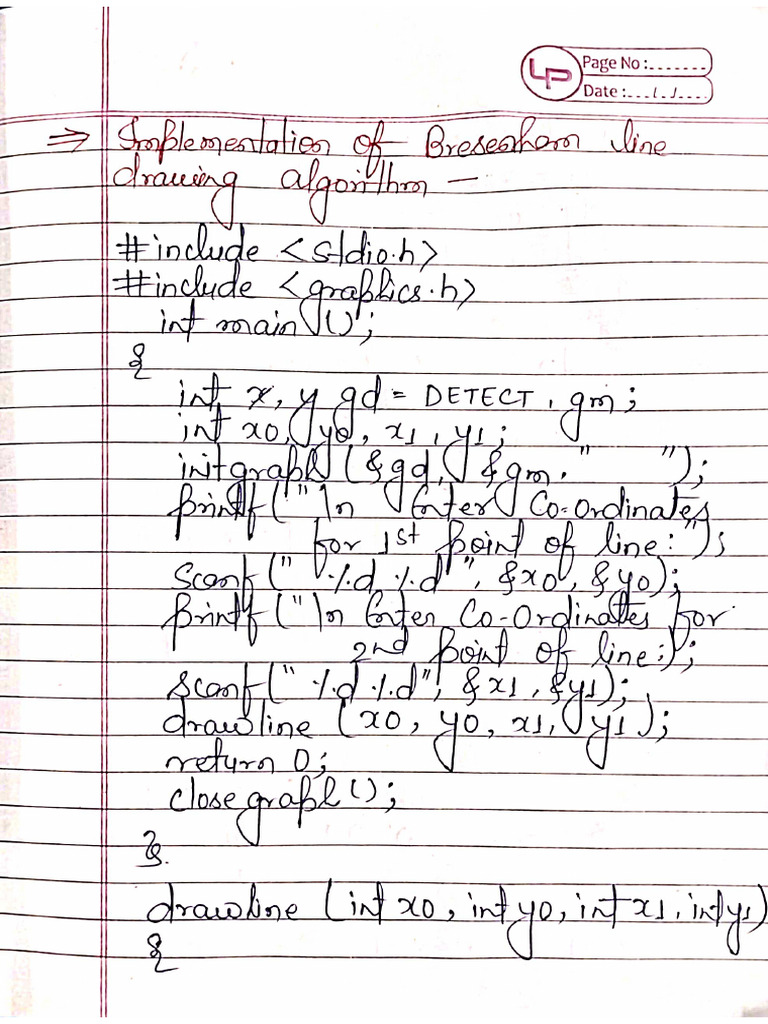 LP
Page No :.......
Date :.../../....
⇒ Implementation of Bresenham line
drawing algorithm —
#include <stdio.h>
#include <graphics.h>
int main ();
{
int x, y gd = DETECT, gm;
int x0, y0, x1, y1;
initgraph (&gd, &gm. "    ");
printf("\n Enter Co-Ordinates
for 1st point of line:");
scanf(" %d %d ", &x0, &y0);
printf("\n Enter Co-Ordinates for
2nd point of line:);
scanf(" %d %d", &x1, &y1);
drawline (x0, y0, x1, y1);
return 0;
closegraph();
}.
drawline (int x0, int y0, int x1, int y1)
{